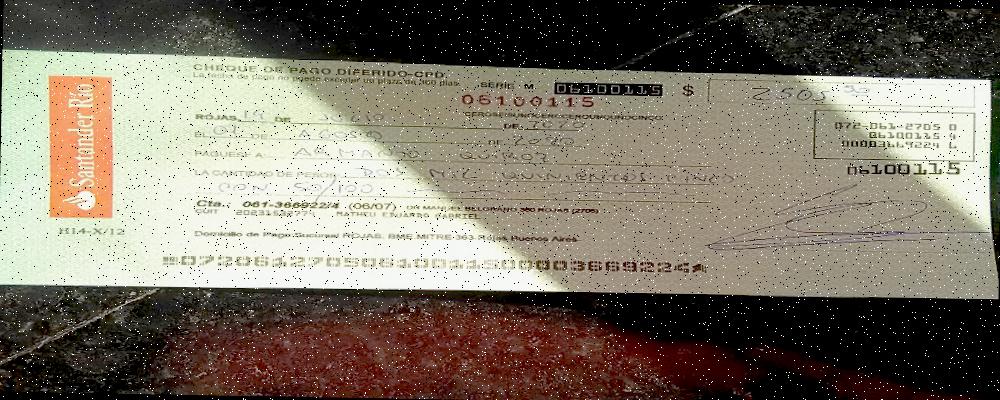 Santander Río
H14-X/12
CHEQUE DE PAGO DIFERIDO-CPD.
La fecha de pago no puede exceder un plazo de 360 días
SERIE M 06100115 $ 2505
06100115
ROJAS, 19 DE DE 2020
EL DE AGOSTO DE 2020
PAGUESE A ARMANDO QUIROZ
LA CANTIDAD DE PESOS DOS MIL QUINIENTOS CINCO
CON 50/100
072-061-2705 0
06100115 4
00003669224 6
06100115
Cta.: 061-366922/4 (06/07) DR MANUEL BELGRANO 360 ROJAS (2705)
CUIT MATHEU EDUARDO GABRIEL
Domicilio de Pago:Sucursal ROJAS, BME.MITRE-363 Rojas Buenos Aires